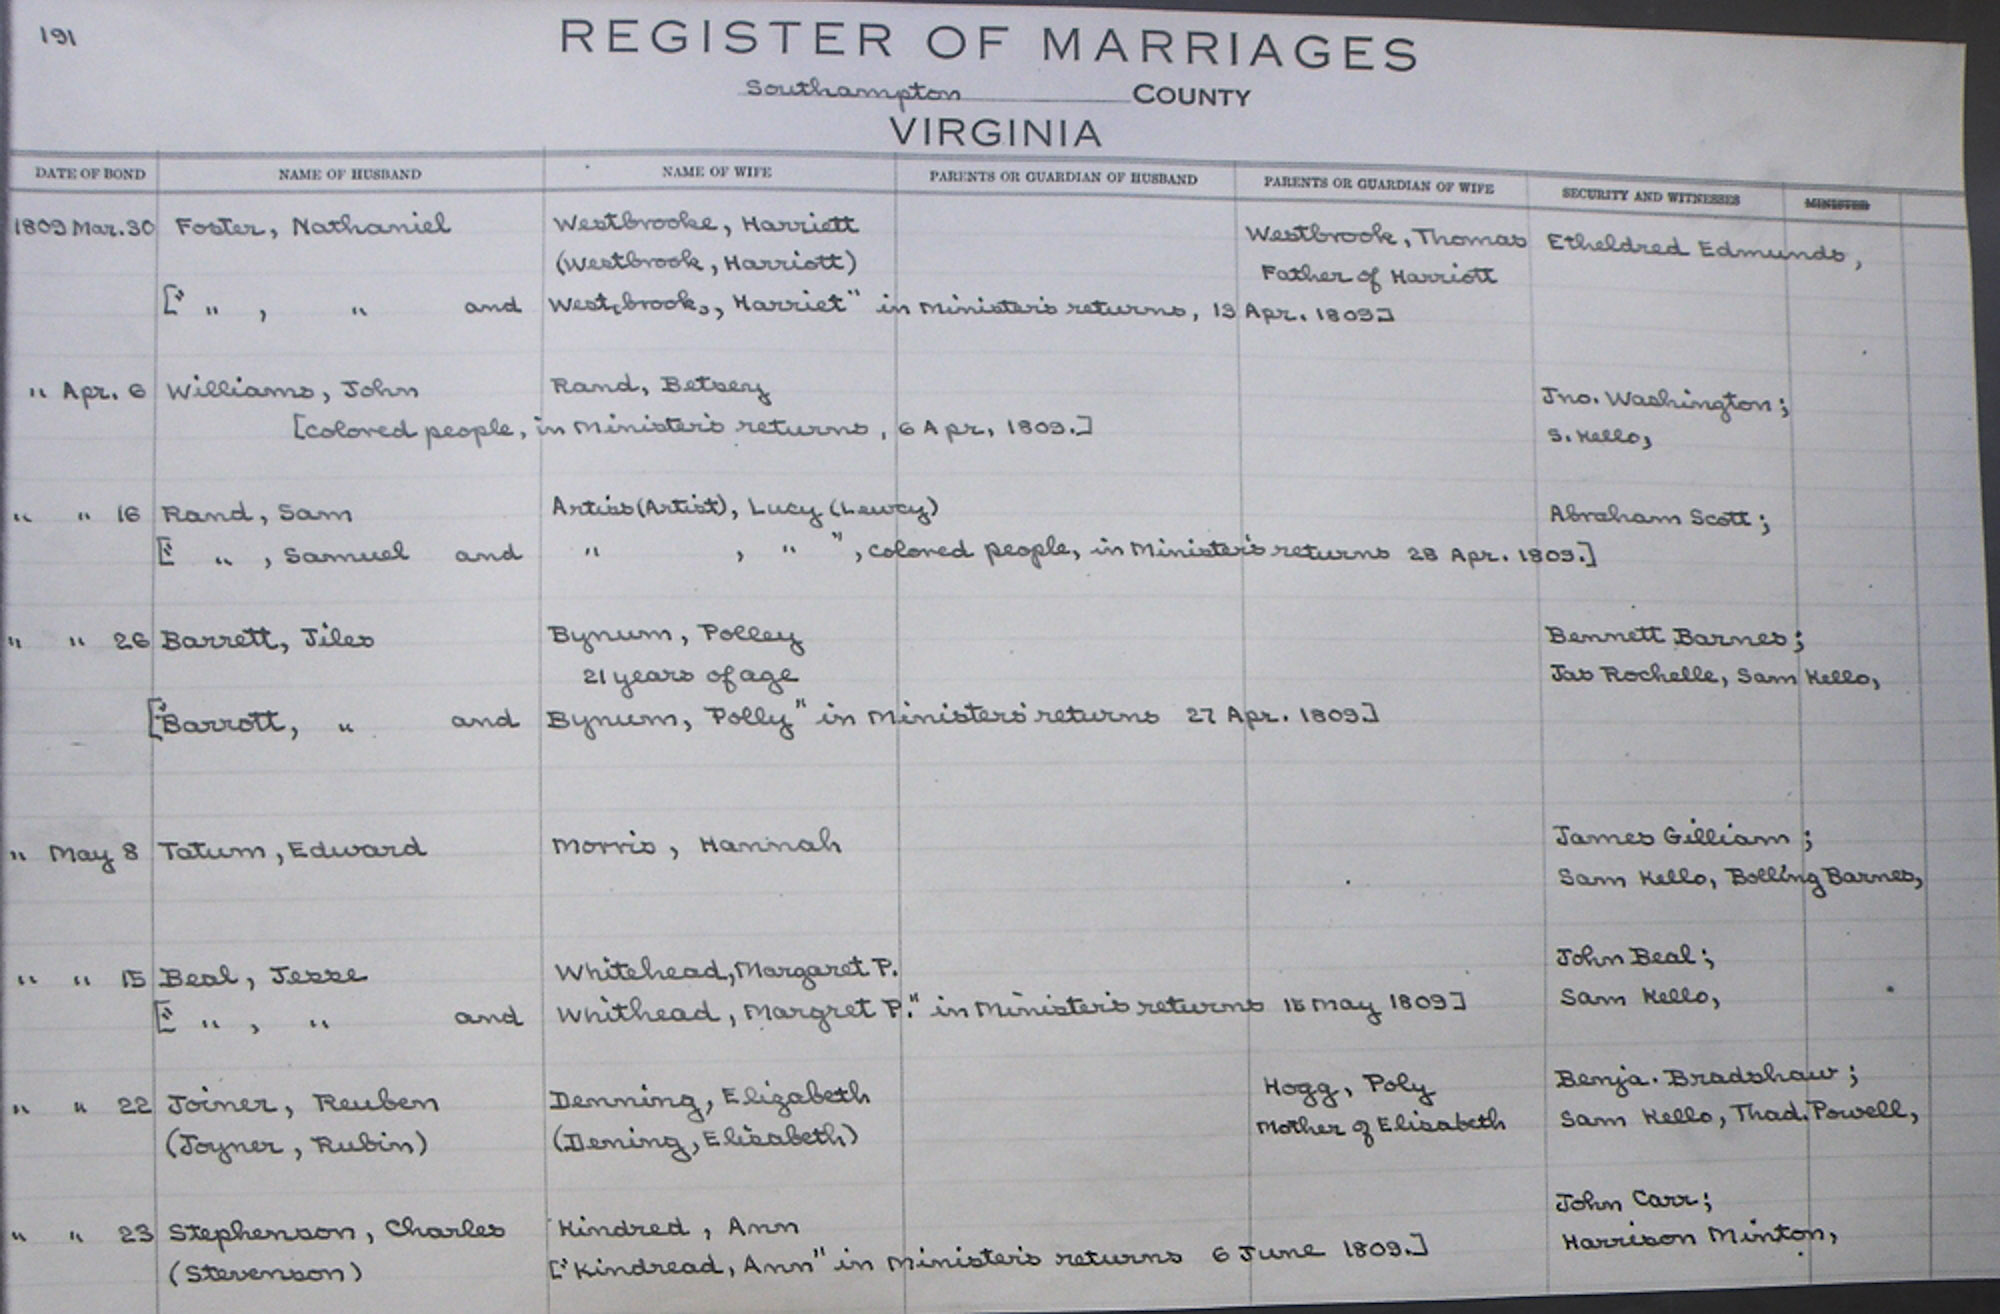 191
REGISTER OF MARRIAGES
Southampton COUNTY
VIRGINIA
DATE OF BOND NAME OF HUSBAND NAME OF WIFE PARENTS OR GUARDIAN OF HUSBAND PARENTS OR GUARDIAN OF WIFE SECURITY AND WITNESSES MINISTER
1809 Mar. 30 Foster, Nathaniel Westbrooke, Harriett Westbrook, Thomas Etheldred Edmunds,
(Westbrook, Harriott) Father of Harriott
[" " , " and West,brook,, Harriet" in Minister's returns, 13 Apr. 1809]
" Apr. 6 Williams, John Rand, Betsey Jno. Washington;
[colored people, in Minister's returns, 6 Apr, 1809.] S. Kello,
" " 16 Rand, Sam Artiss (Artist), Lucy (Lewcy) Abraham Scott;
[" " , Samuel and " , " ", colored people, in Minister's returns 28 Apr. 1809.]
" " 26 Barrett, Jiles Bynum, Polley Bennett Barnes;
21 years of age Jas Rochelle, Sam Kello,
["Barrott, " and Bynum, Polly" in Ministers' returns 27 Apr. 1809.]
" May 8 Tatum, Edward Morris, Hannah James Gilliam;
Sam Kello, Bolling Barnes,
" " 15 Beal, Jesse Whitehead, Margaret P. John Beal;
[" " , " and Whithead, Margret P." in Minister's returns 18 May 1809] Sam Kello,
" " 22 Joiner, Reuben Denning, Elizabeth Hogg, Poly Benja. Bradshaw;
(Joyner, Rubin) (Dening, Elisabeth) Mother of Elisabeth Sam Kello, Thad. Powell,
" " 23 Stephenson, Charles Kindred, Ann John Carr;
(Stevenson) ["Kindread, Ann" in Minister's returns 6 June 1809.] Harrison Minton,